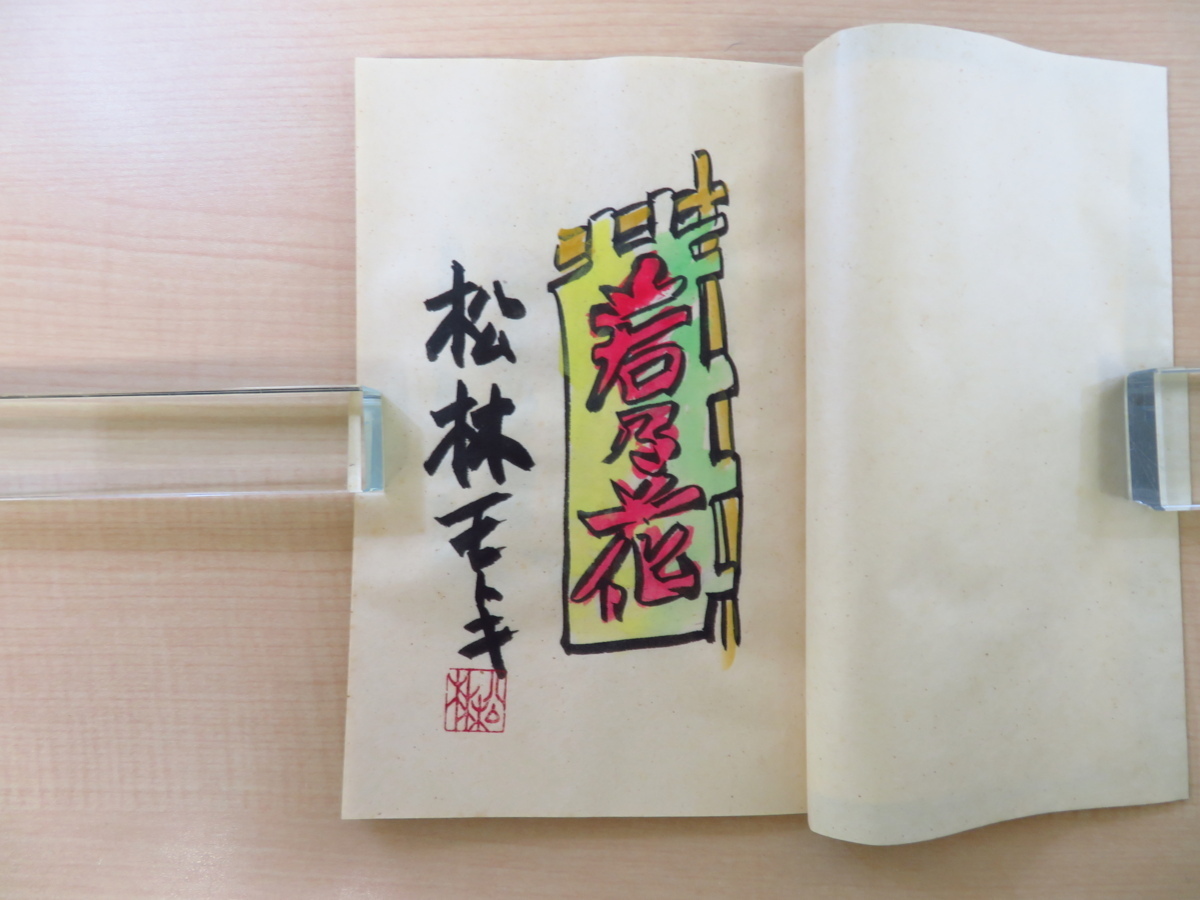 若乃花
松林モトキ
松林